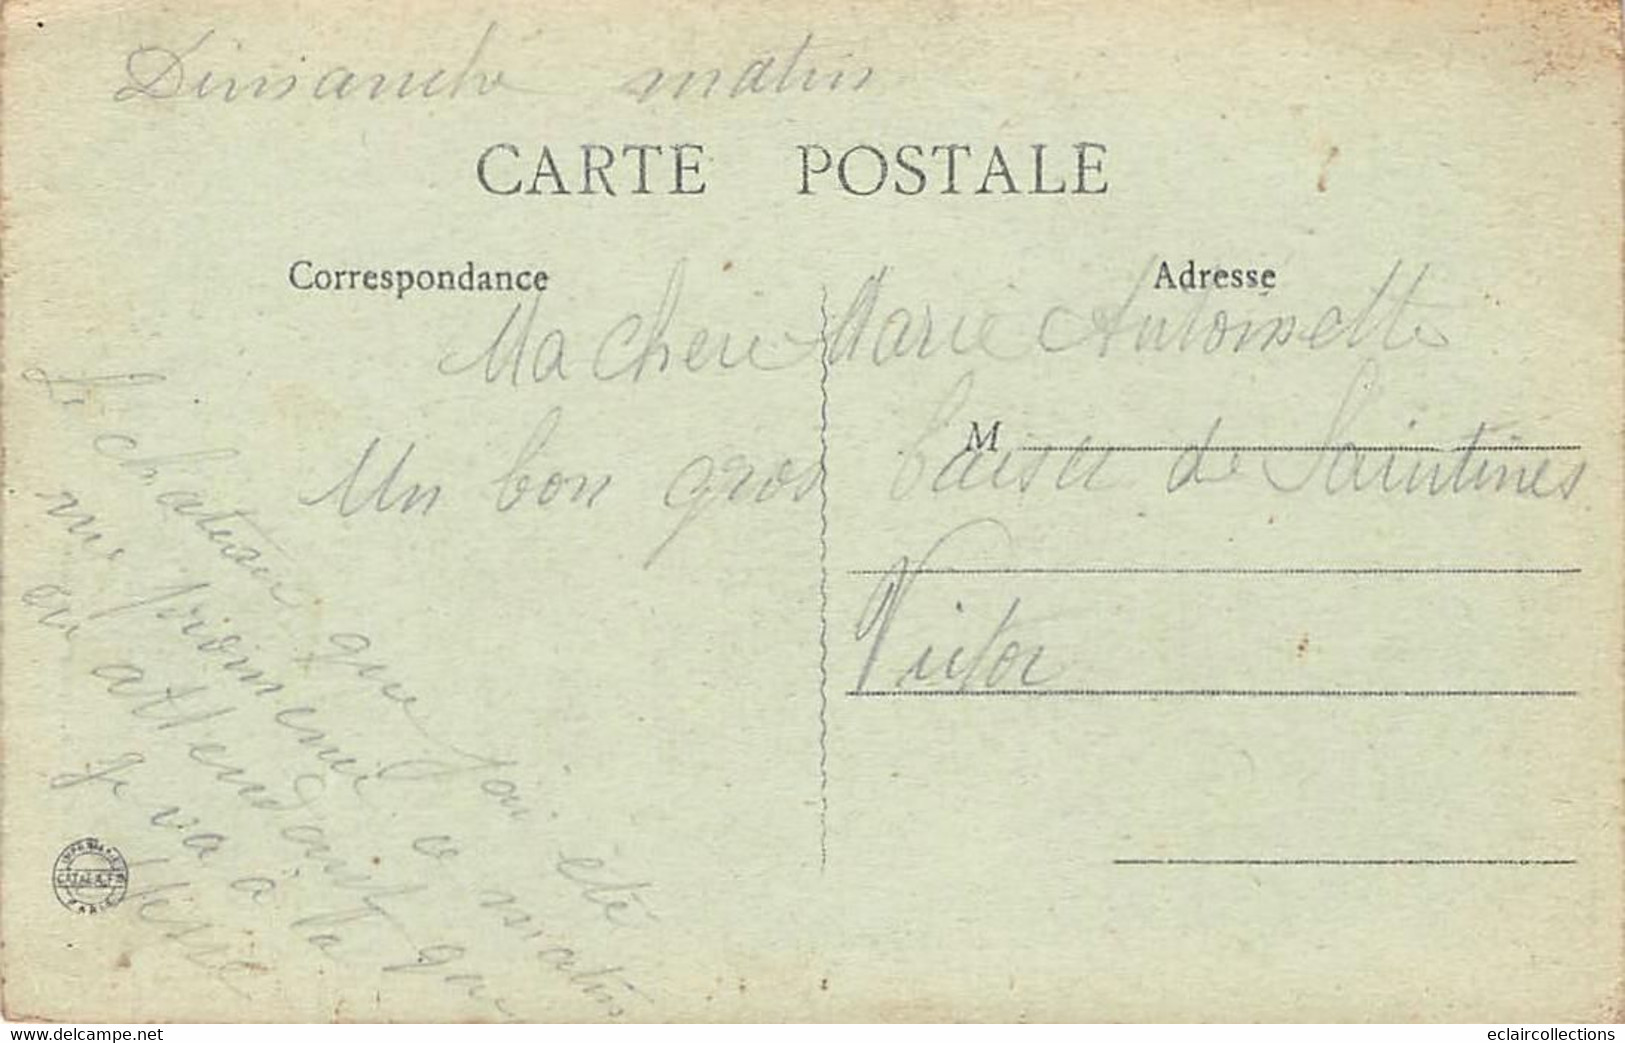 Dimanche matin
CARTE POSTALE
Correspondance
Adresse
Ma Cherie Marie Antoinette
M
Un bon gros baiser de Saintines
Victor
Le chateau que j'ai été
me promener ce matin
en attendant que
je va à la
Messe
IMPRIMERIE
CATALA FRES
PARIS
www.delcampe.net
eclaircollections